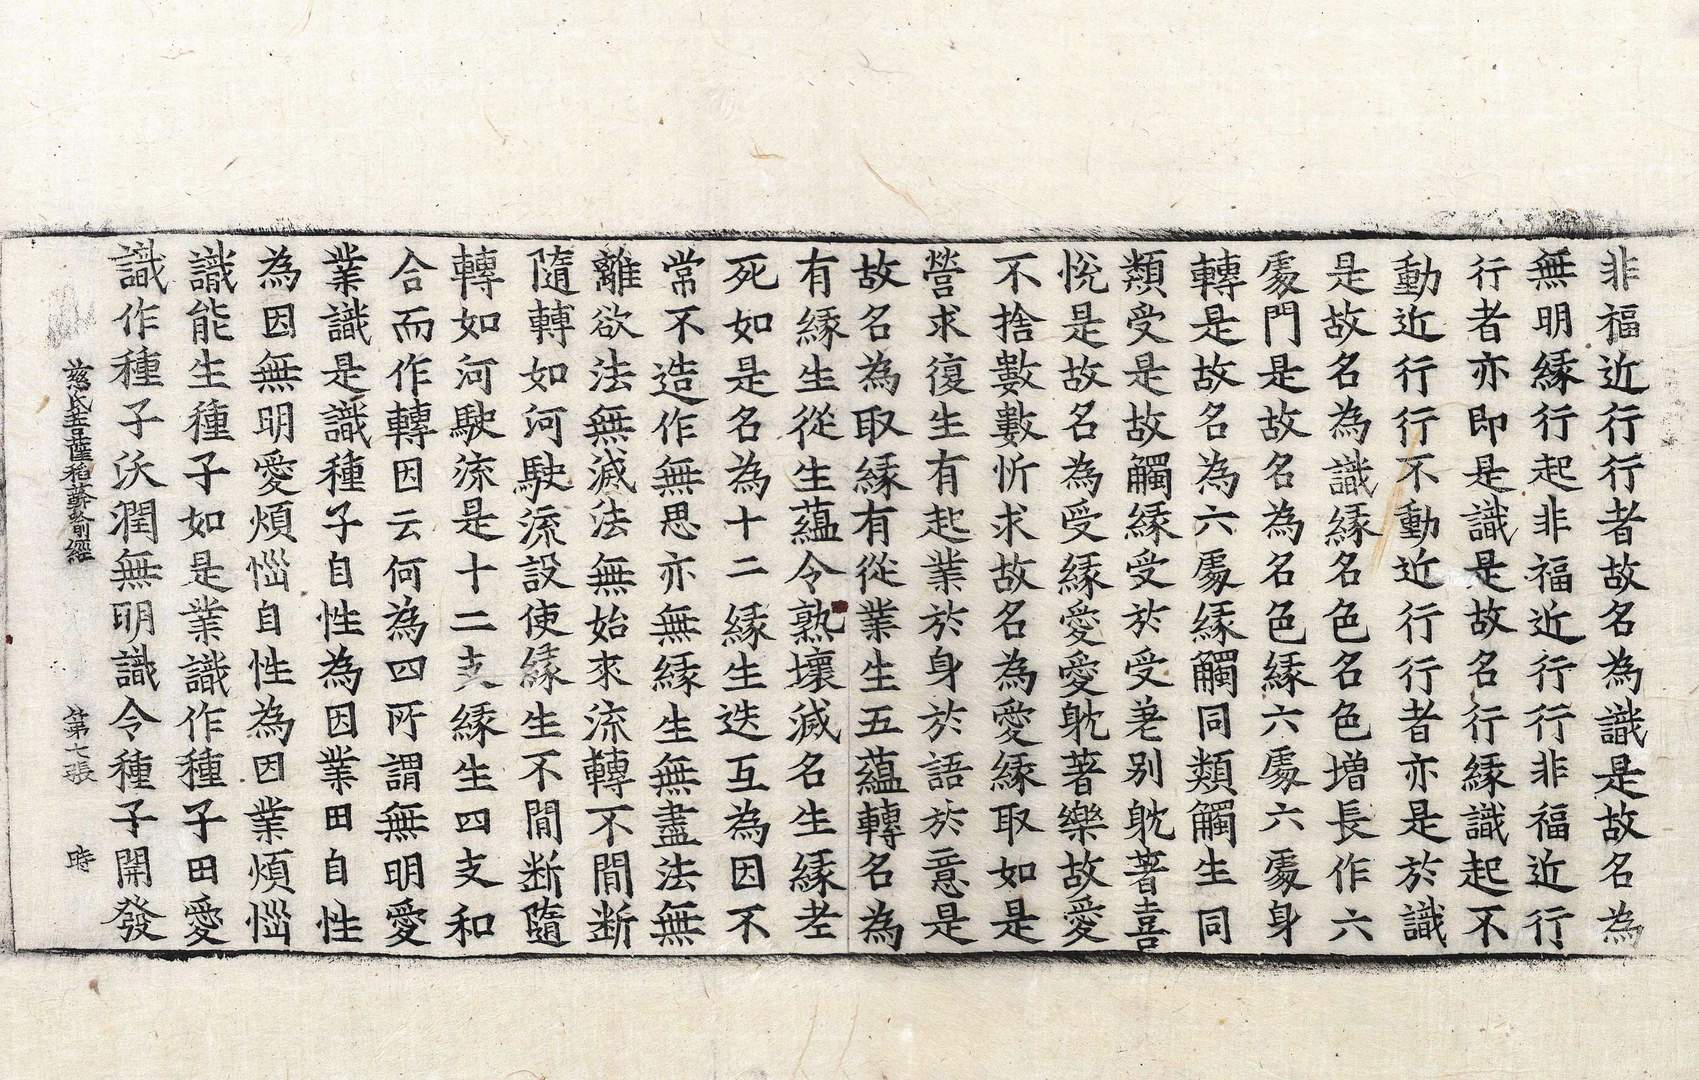 非福近行行者故名為識是故名為
無明緣行起非福近行行非福近行
行者亦即是識是故名行緣識起不
動近行行不動近行行者亦是於識
是故名為識緣名色名色增長作六
處門是故名為名色緣六處六處身
轉是故名為六處緣觸同類觸生同
類受是故觸緣受於受差別躭著喜
悅是故名為受緣愛愛躭著樂故愛
不捨數數忻求故名為愛緣取如是
營求復生有起業於身於語於意是
故名為取緣有從業生五蘊轉名為
有緣生從生蘊令熟壞滅名生緣老
死如是名為十二緣生迭互為因不
常不造作無思亦無緣生無盡法無
離欲法無滅法無始來流轉不間断
隨轉如河駛流設使緣生不間断隨
轉如河駛流是十二支緣生四支和
合而作轉因云何為四所謂無明愛
業識是識種子自性為因業田自性
為因無明愛煩惱自性為因業煩惱
識能生種子如是業識作種子田愛
識作種子沃潤無明識令種子開發
慈氏菩薩稻䕀喻經 第七張 時